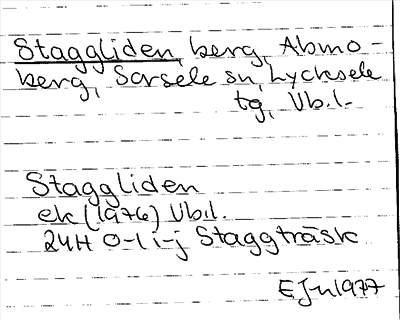 Staggliden, berg, Abmo-
berg, Sorsele sn, Lycksele
tg, Vb.l.
Staggliden
ek (1976) Vb.l.
24H 0-1 i-j Staggträsk
EJ-n 1977